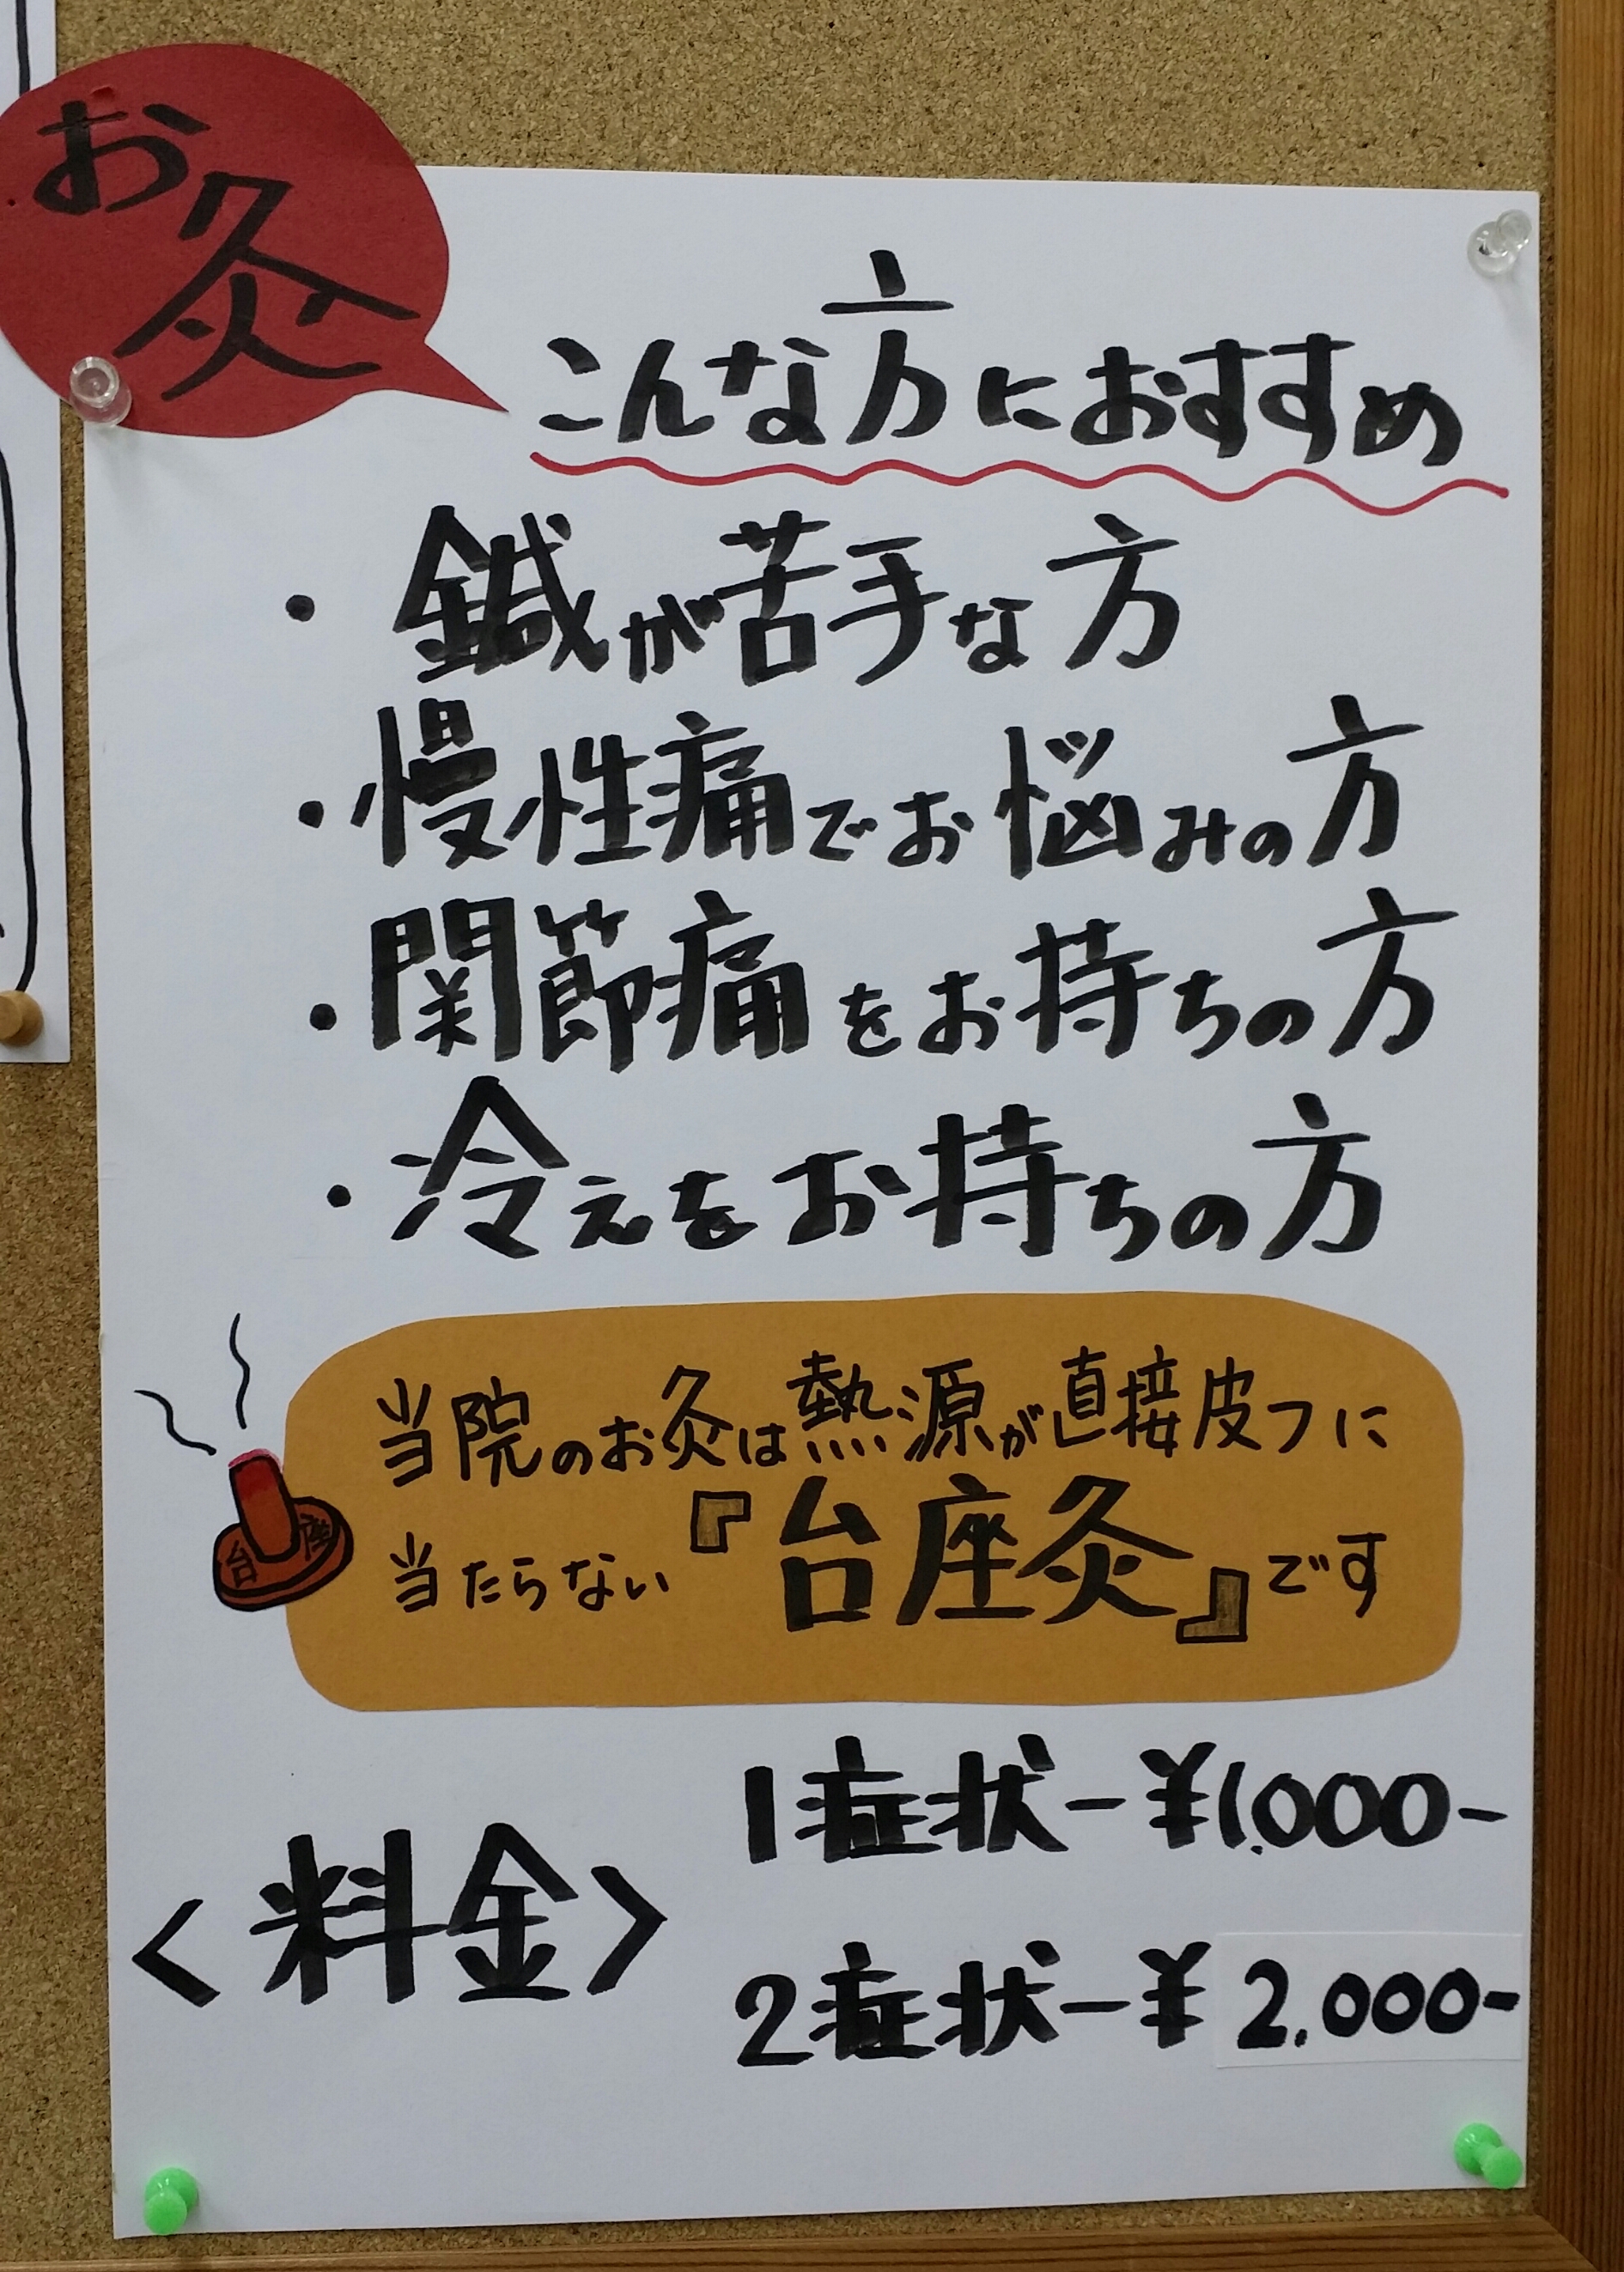 お灸
こんな方におすすめ
・鍼が苦手な方
・慢性痛でお悩みの方
・関節痛をお持ちの方
・冷えをお持ちの方
当院のお灸は熱源が直接皮フに
当たらない『台座灸』です
台座
<料金>
1症状-¥1.000-
2症状-¥2.000-